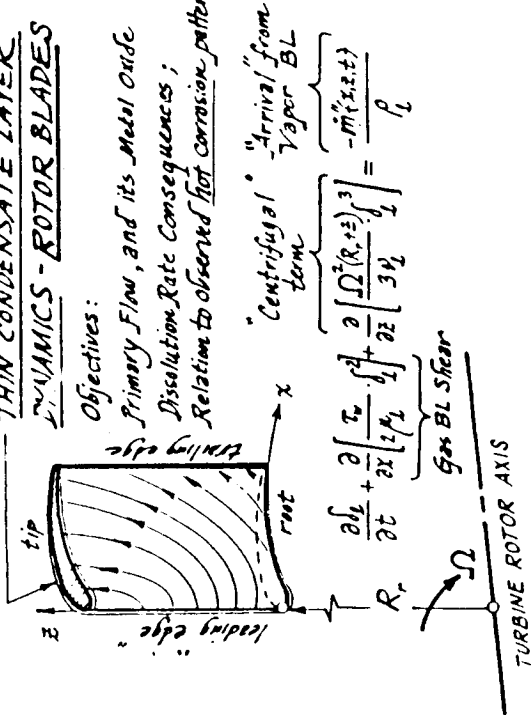 THIN CONDENSATE LAYER
DYNAMICS - ROTOR BLADES
Objectives:
Primary Flow, and its Metal Oxide
Dissolution Rate Consequences;
Relation to observed hot corrosion
tip
z
"leading edge"
trailing edge
root
x
"Centrifugal"
term
"Arrival" from
Vapor BL
∂δ_L/∂t + ∂/∂x [τ_w/2μ_L · δ_L^2] + ∂/∂z [Ω^2(R_r+z)/3ν_L · δ_L^3] = -ṁ"(x,z,t)/ρ_L
Gas BL Shear
R_r
Ω
TURBINE ROTOR AXIS